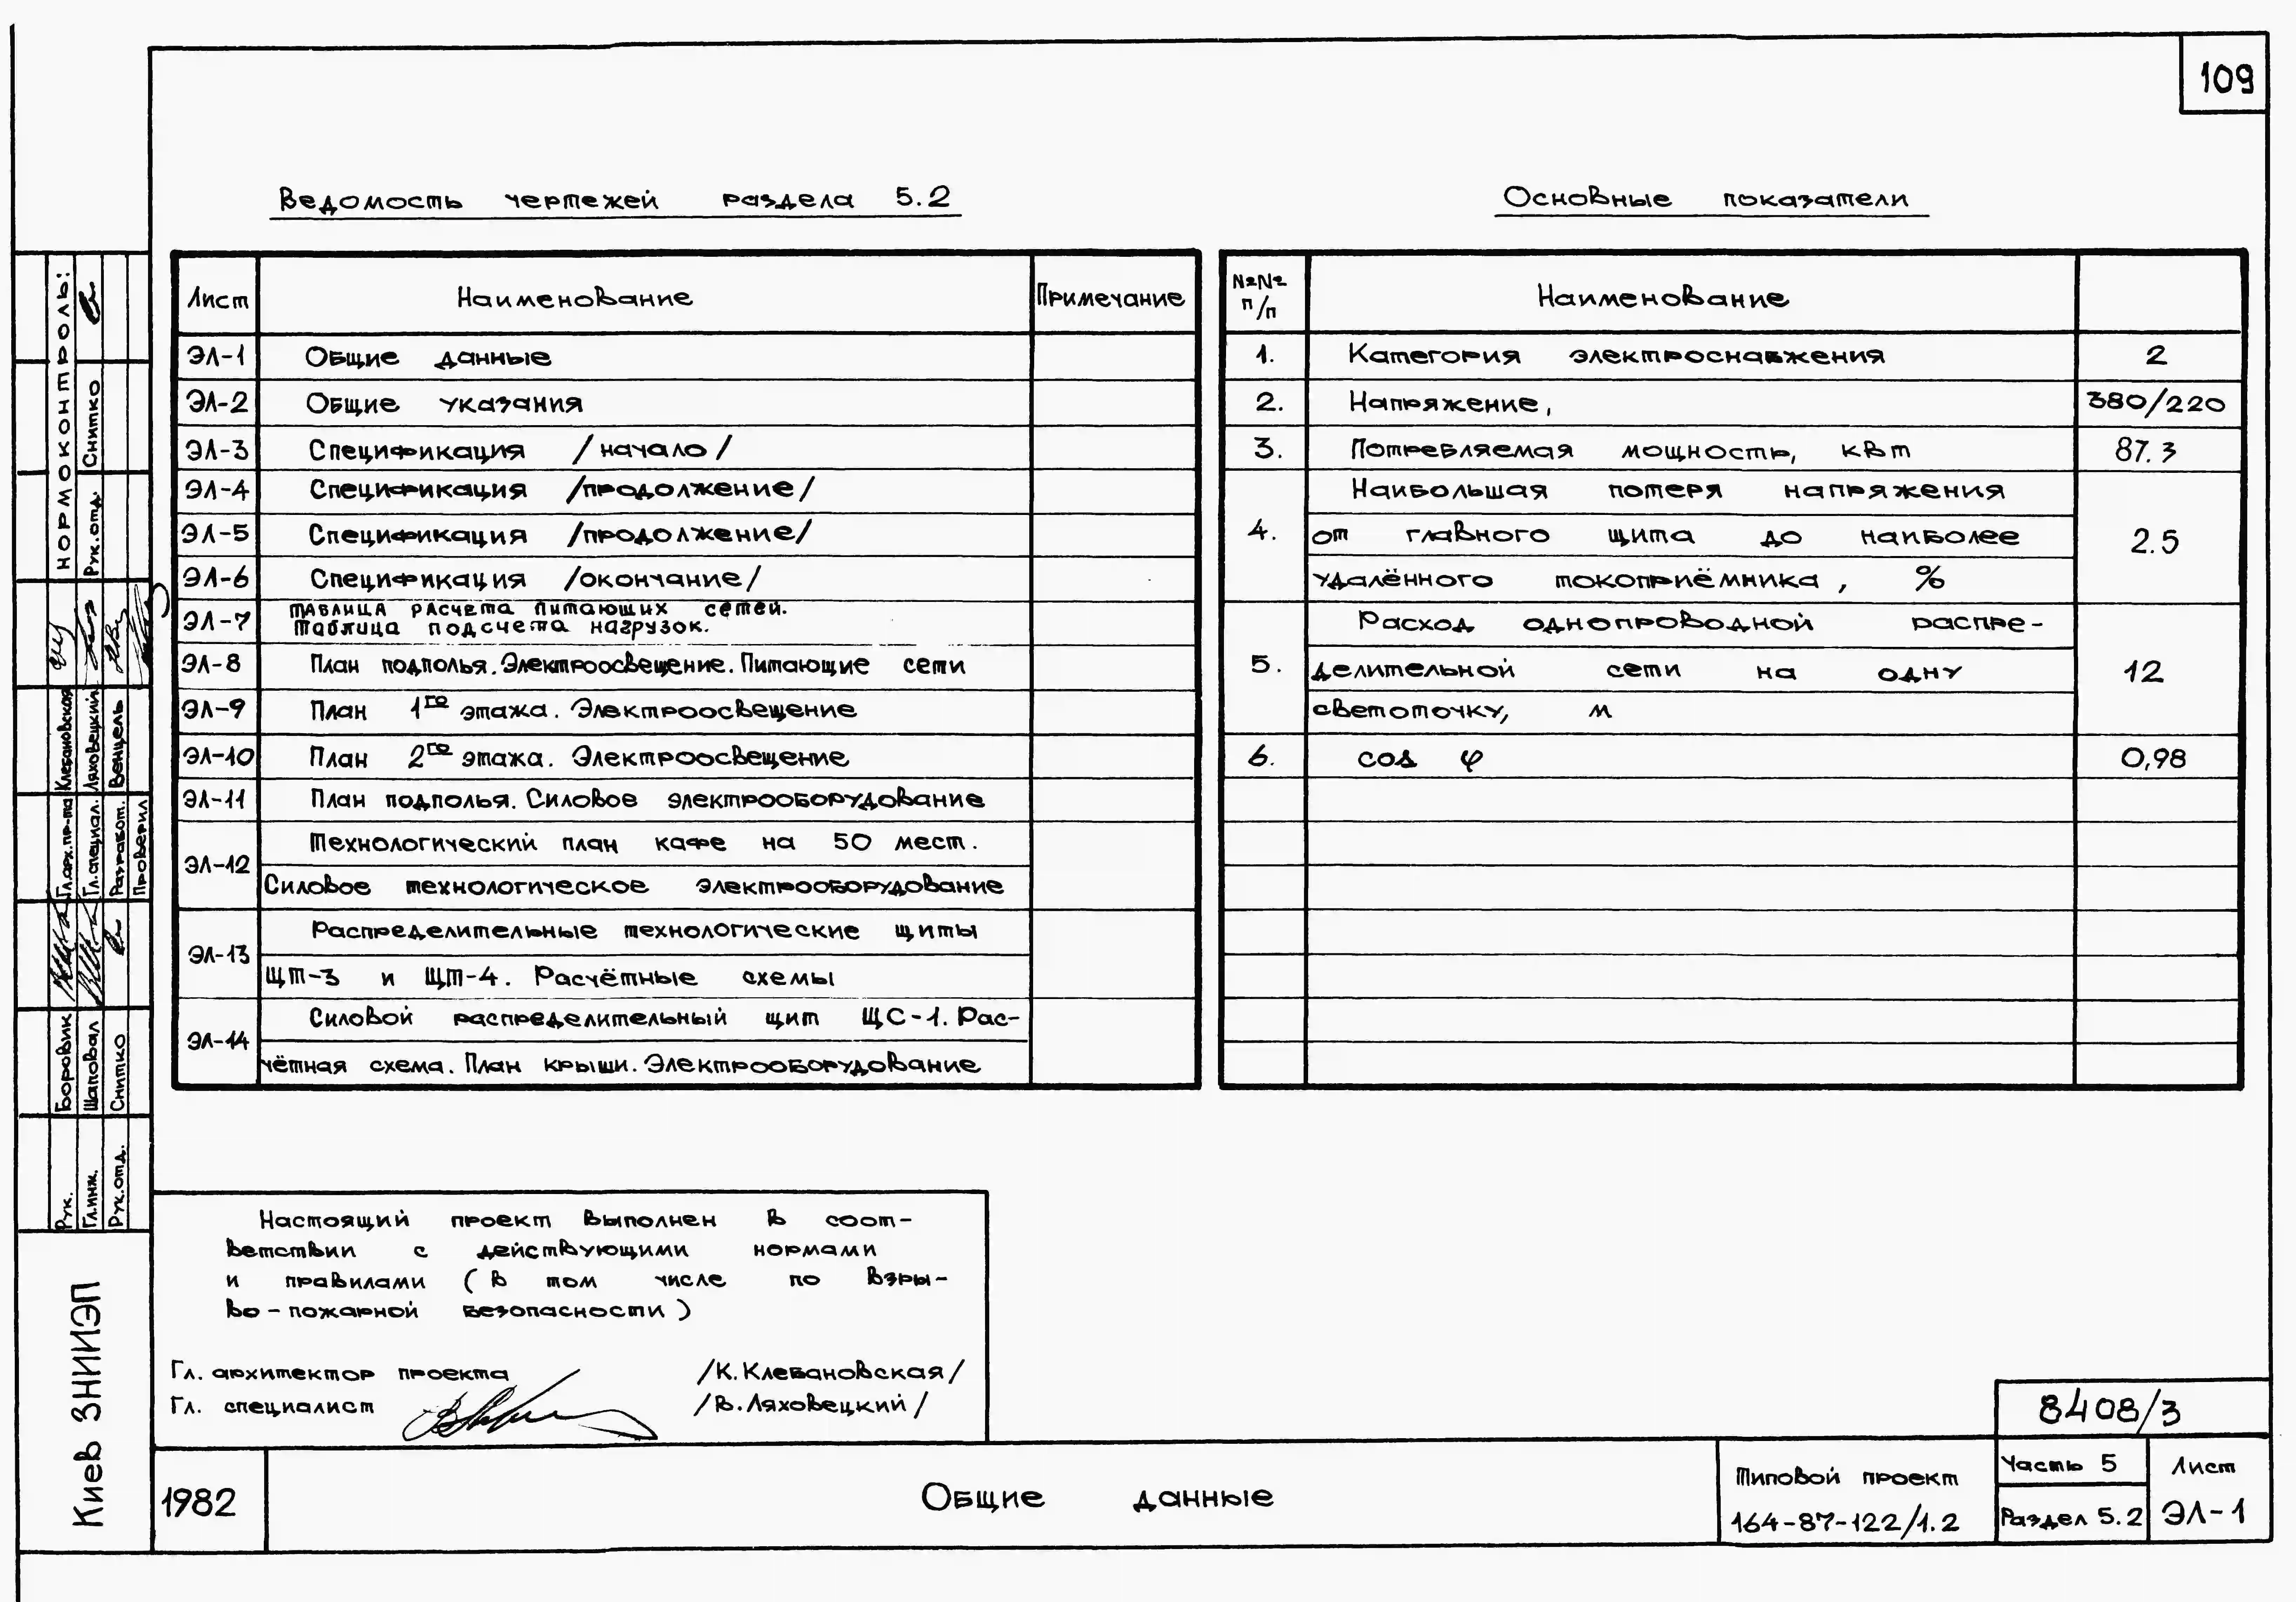 109
Ведомость чертежей раздела 5.2
Лист Наименование Примечание
ЭЛ-1 Общие данные
ЭЛ-2 Общие указания
ЭЛ-3 Спецификация /начало/
ЭЛ-4 Спецификация /продолжение/
ЭЛ-5 Спецификация /продолжение/
ЭЛ-6 Спецификация /окончание/
ЭЛ-7 Таблица расчета питающих сетей.
Таблица подсчета нагрузок.
ЭЛ-8 План подполья. Электроосвещение. Питающие сети
ЭЛ-9 План 1го этажа. Электроосвещение
ЭЛ-10 План 2го этажа. Электроосвещение
ЭЛ-11 План подполья. Силовое электрооборудование
ЭЛ-12 Технологический план кафе на 50 мест.
Силовое технологическое электрооборудование
ЭЛ-13 Распределительные технологические щиты
ЩТ-3 и ЩТ-4. Расчётные схемы
ЭЛ-14 Силовой распределительный щит ЩС-1. Рас-
чётная схема. План крыши. Электрооборудование
Основные показатели
№№ п/п Наименование
1. Категория электроснабжения 2
2. Напряжение, 380/220
3. Потребляемая мощность, квт 87.3
4. Наибольшая потеря напряжения
от главного щита до наиболее
удалённого токоприёмника, % 2.5
5. Расход однопроводной распре-
делительной сети на одну
светоточку, м 12
6. cos φ 0,98
Настоящий проект выполнен в соот-
ветствии с действующими нормами
и правилами (в том числе по взры-
во-пожарной безопасности)
Гл. архитектор проекта /К. Клебановская/
Гл. специалист /В. Ляховецкий/
нормоконтроль:
Рук. отд. Снитко
Гл. арх. пр-та Клебановская
Гл. специал. Ляховецкий
Разработ. Венцель
Проверил
Рук. Боровик
Гл. инж. Шаповал
Рук. отд. Снитко
Киев ЗНИИЭП
1982
Общие данные
8408/3
Типовой проект
164-87-122/1.2
Часть 5
Раздел 5.2
Лист
ЭЛ-1